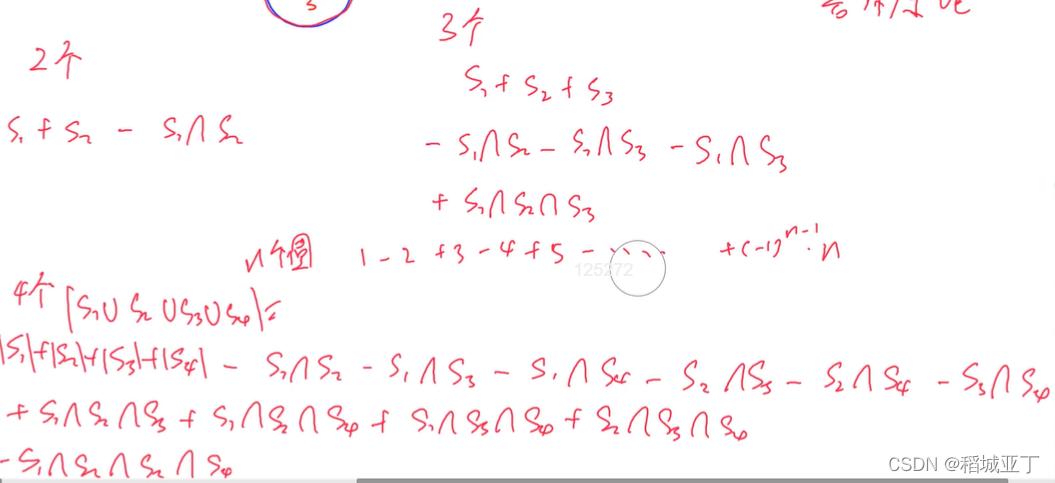 3
2个
S₁ + S₂ - S₁∩S₂
3个
S₁ + S₂ + S₃
- S₁∩S₂ - S₂∩S₃ - S₁∩S₃
+ S₁∩S₂∩S₃
n个圆 1 - 2 + 3 - 4 + 5 - ····· + (-1)ⁿ⁻¹·n
125272
4个 |S₁∪S₂∪S₃∪S₄| =
|S₁|+|S₂|+|S₃|+|S₄| - S₁∩S₂ - S₁∩S₃ - S₁∩S₄ - S₂∩S₃ - S₂∩S₄ - S₃∩S₄
+ S₁∩S₂∩S₃ + S₁∩S₂∩S₄ + S₁∩S₃∩S₄ + S₂∩S₃∩S₄
- S₁∩S₂∩S₂∩S₄
CSDN @稻城亚丁